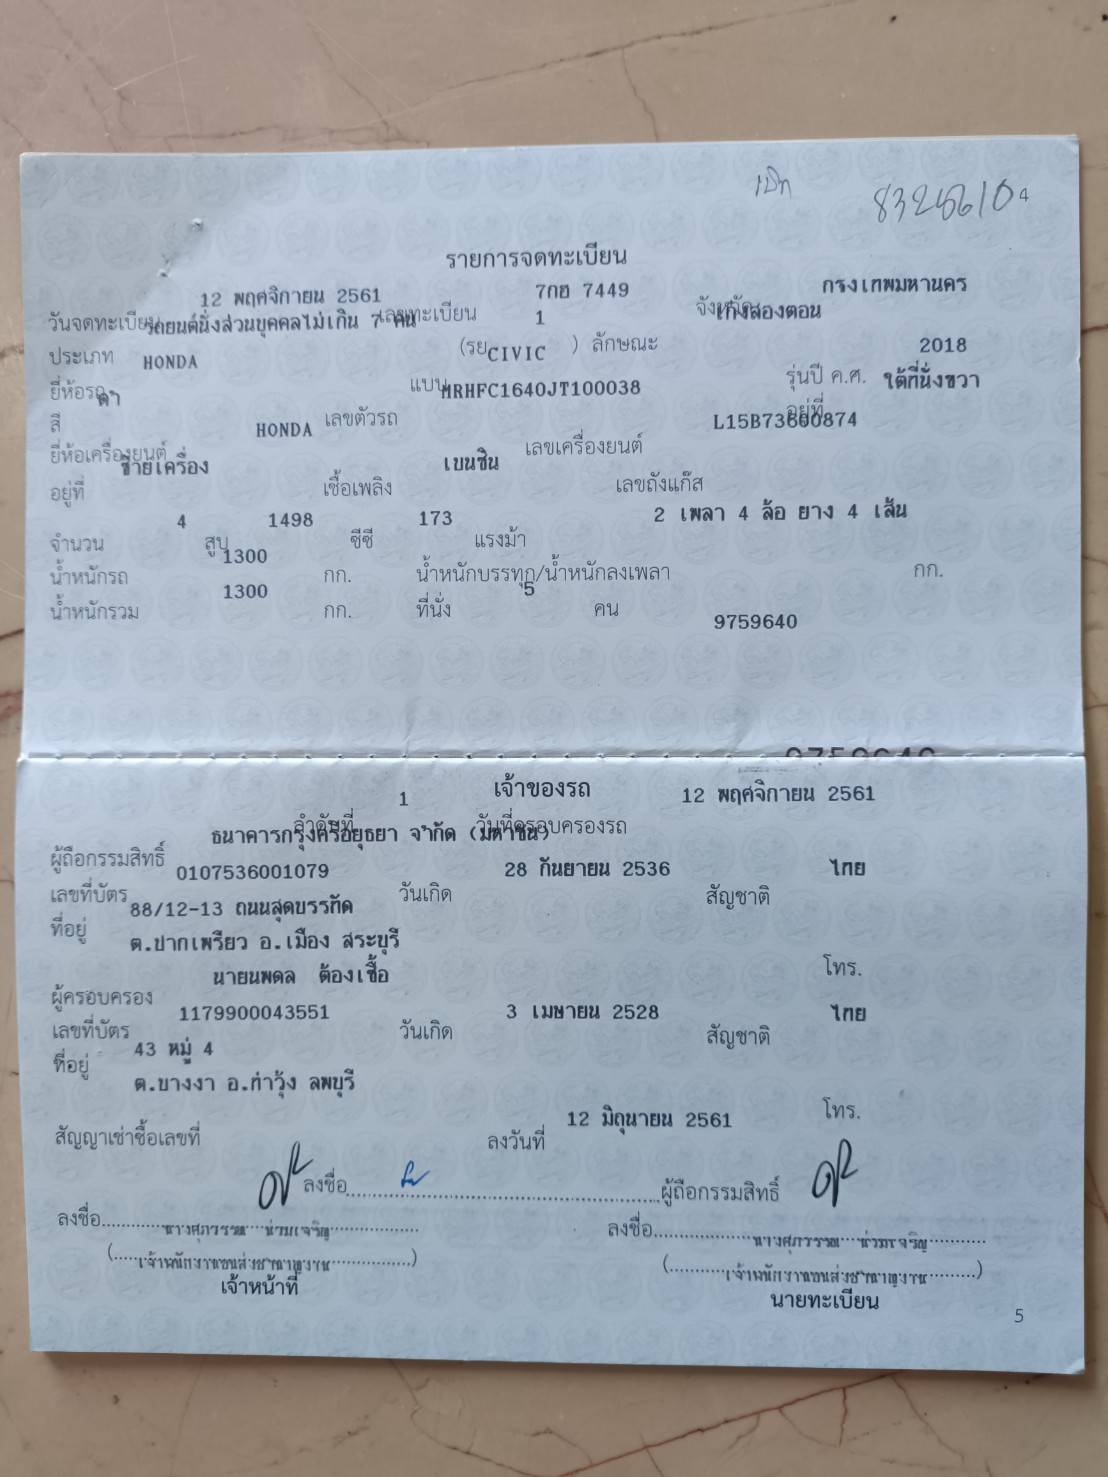 เบิก 8325610 4
รายการจดทะเบียน
12 พฤศจิกายน 2561 7กฮ 7449 กรุงเทพมหานคร
วันจดทะเบียน เลขทะเบียน จังหวัด
รถยนต์นั่งส่วนบุคคลไม่เกิน 7 คน 1 เก๋งสองตอน
ประเภท (รย. ) ลักษณะ
HONDA CIVIC 2018
ยี่ห้อรถ แบบ รุ่นปี ค.ศ.
ดำ MRHFC1640JT100038 ใต้ที่นั่งขวา
สี เลขตัวรถ อยู่ที่
HONDA L15B73600874
ยี่ห้อเครื่องยนต์ เลขเครื่องยนต์
ซ้ายเครื่อง เบนซิน
อยู่ที่ เชื้อเพลิง เลขถังแก๊ส
4 1498 173 2 เพลา 4 ล้อ ยาง 4 เส้น
จำนวน สูบ ซีซี แรงม้า
1300
น้ำหนักรถ กก. น้ำหนักบรรทุก/น้ำหนักลงเพลา กก.
1300 5
น้ำหนักรวม กก. ที่นั่ง คน
9759640
9759640
เจ้าของรถ
1 12 พฤศจิกายน 2561
ลำดับที่ วันที่ครอบครองรถ
ธนาคารกรุงศรีอยุธยา จำกัด (มหาชน)
ผู้ถือกรรมสิทธิ์
0107536001079 28 กันยายน 2536 ไทย
เลขที่บัตร วันเกิด สัญชาติ
88/12-13 ถนนสุดบรรทัด
ที่อยู่
ต.ปากเพรียว อ.เมือง สระบุรี
โทร.
นายนพดล ต้องเชื้อ
ผู้ครอบครอง
1179900043551 3 เมษายน 2528 ไทย
เลขที่บัตร วันเกิด สัญชาติ
43 หมู่ 4
ที่อยู่
ต.บางงา อ.ท่าวุ้ง ลพบุรี
โทร.
12 มิถุนายน 2561
สัญญาเช่าซื้อเลขที่ ลงวันที่
ลงชื่อ ผู้ถือกรรมสิทธิ์
ลงชื่อ ลงชื่อ
นางศุภวรรณ นางศุภวรรณ
(เจ้าพนักงานขนส่งชำนาญงาน) (เจ้าพนักงานขนส่งชำนาญงาน)
เจ้าหน้าที่ นายทะเบียน
5